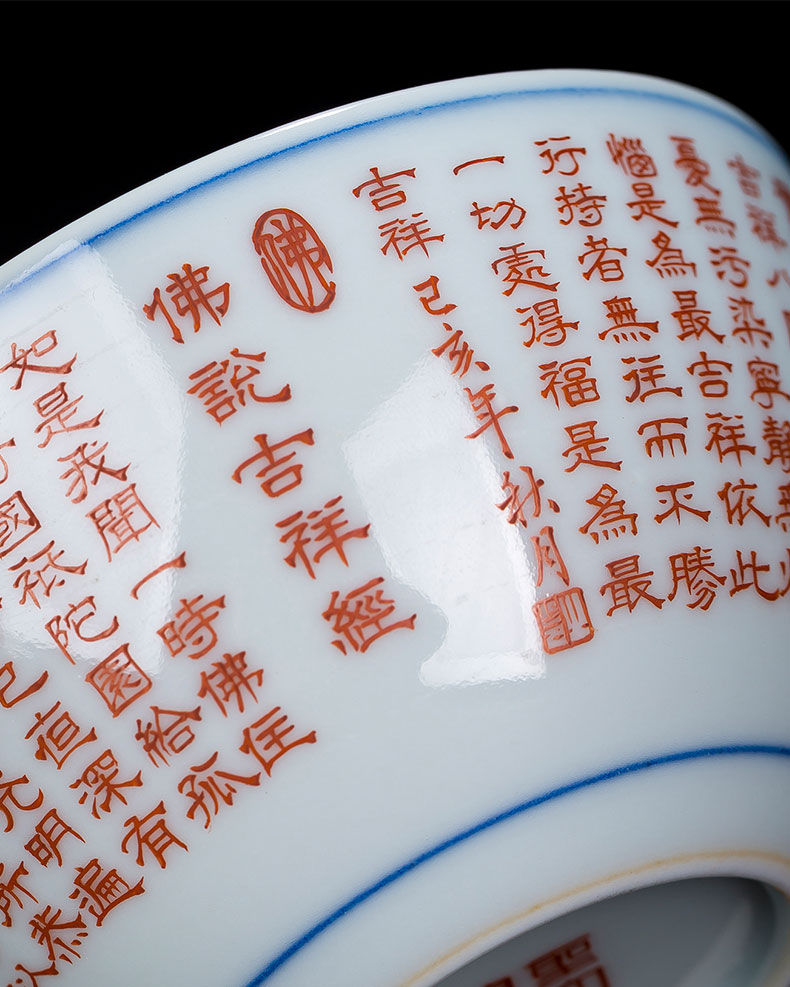 吉祥八
憂無污染寧靜無
惱是為最吉祥依此
行持者無往而不勝
一切處得福是為最
吉祥 己亥年秋月
佛
佛說吉祥經
如是我聞一時佛住
國祇陀園給孤
已值深有
光明遍
所恭
以